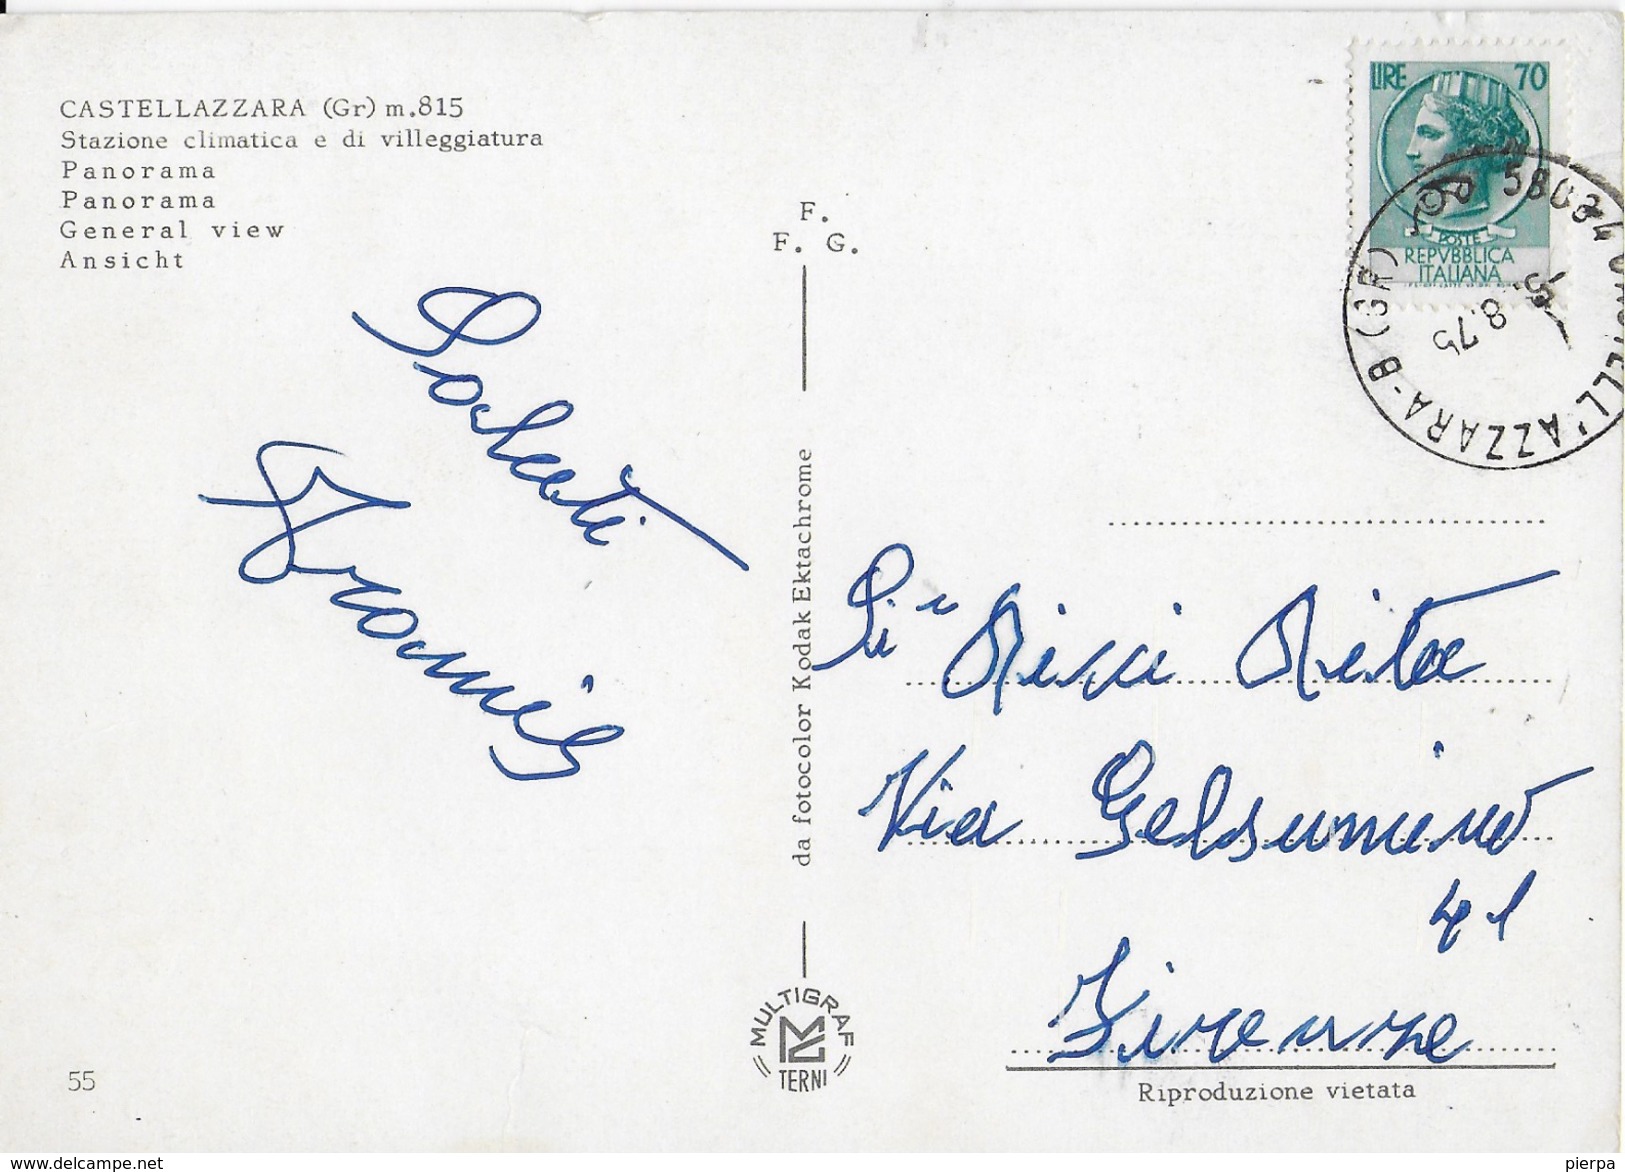 CASTELLAZZARA (Gr) m.815
Stazione climatica e di villeggiatura
Panorama
Panorama
General view
Ansicht
F.
F. G.
da fotocolor Kodak Ektachrome
MULTIGRAF
TERNI
55
LIRE 70
POSTE
REPVBBLICA
ITALIANA
58034 CASTELL'AZZARA-B (GR)
8.75
Saluti
Ricci Rita
Via Gelsomino
41
Firenze
Riproduzione vietata
pierpa